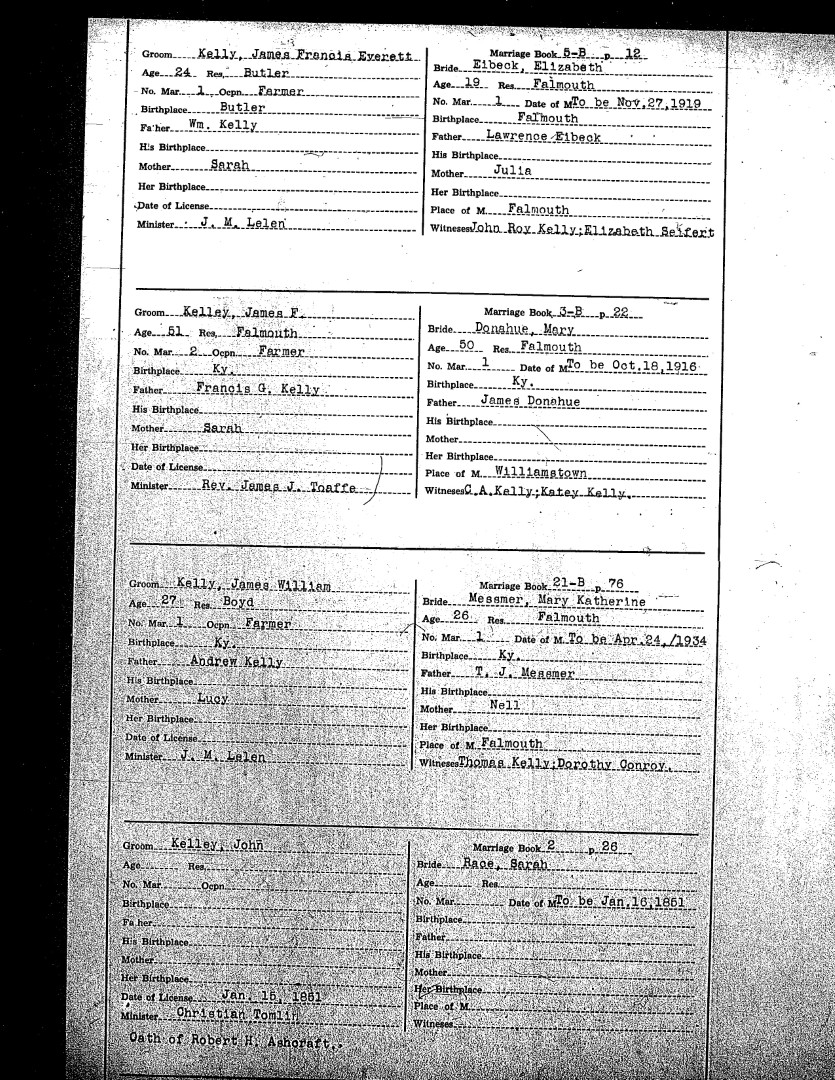 Groom Kelly, James Francis Everett
Age 24 Res. Butler
No. Mar. 1 Ocpn. Farmer
Birthplace Butler
Father Wm. Kelly
His Birthplace
Mother Sarah
Her Birthplace
Date of License
Minister J. M. Lelen
Marriage Book 5-B p. 12
Bride Eibeck, Elizabeth
Age 19 Res. Falmouth
No. Mar. 1 Date of M To be Nov.27,1919
Birthplace Falmouth
Father Lawrence Eibeck
His Birthplace
Mother Julia
Her Birthplace
Place of M. Falmouth
Witneses John Roy Kelly;Elizabeth Seifert
Groom Kelley, James F.
Age 51 Res. Falmouth
No. Mar. 2 Ocpn. Farmer
Birthplace Ky.
Father Francis G. Kelly
His Birthplace
Mother Sarah
Her Birthplace
Date of License
Minister Rev. James J. Toaffe
Marriage Book 3-B p. 22
Bride Donahue, Mary
Age 50 Res. Falmouth
No. Mar. 1 Date of M To be Oct.18,1916
Birthplace Ky.
Father James Donahue
His Birthplace
Mother
Her Birthplace
Place of M. Williamstown
Witneses C.A.Kelly;Katey Kelly.
Groom Kelly, James William
Age 27 Res. Boyd
No. Mar. 1 Ocpn. Farmer
Birthplace Ky.
Father Andrew Kelly
His Birthplace
Mother Lucy
Her Birthplace
Date of License
Minister J. M. Lelen
Marriage Book 21-B p. 76
Bride Messmer, Mary Katherine
Age 26 Res. Falmouth
No. Mar. 1 Date of M. To be Apr.24,/1934
Birthplace Ky.
Father T. J. Messmer
His Birthplace
Mother Nell
Her Birthplace
Place of M. Falmouth
Witneses Thomas Kelly;Dorothy Conroy.
Groom Kelley, John
Age Res.
No. Mar. Ocpn.
Birthplace
Father
His Birthplace
Mother
Her Birthplace
Date of License Jan. 15, 1851
Minister Christian Tomlin
Oath of Robert H. Ashcraft.
Marriage Book 2 p. 26
Bride Race, Sarah
Age Res.
No. Mar. Date of M To be Jan.16,1851
Birthplace
Father
His Birthplace
Mother
Her Birthplace
Place of M.
Witneses